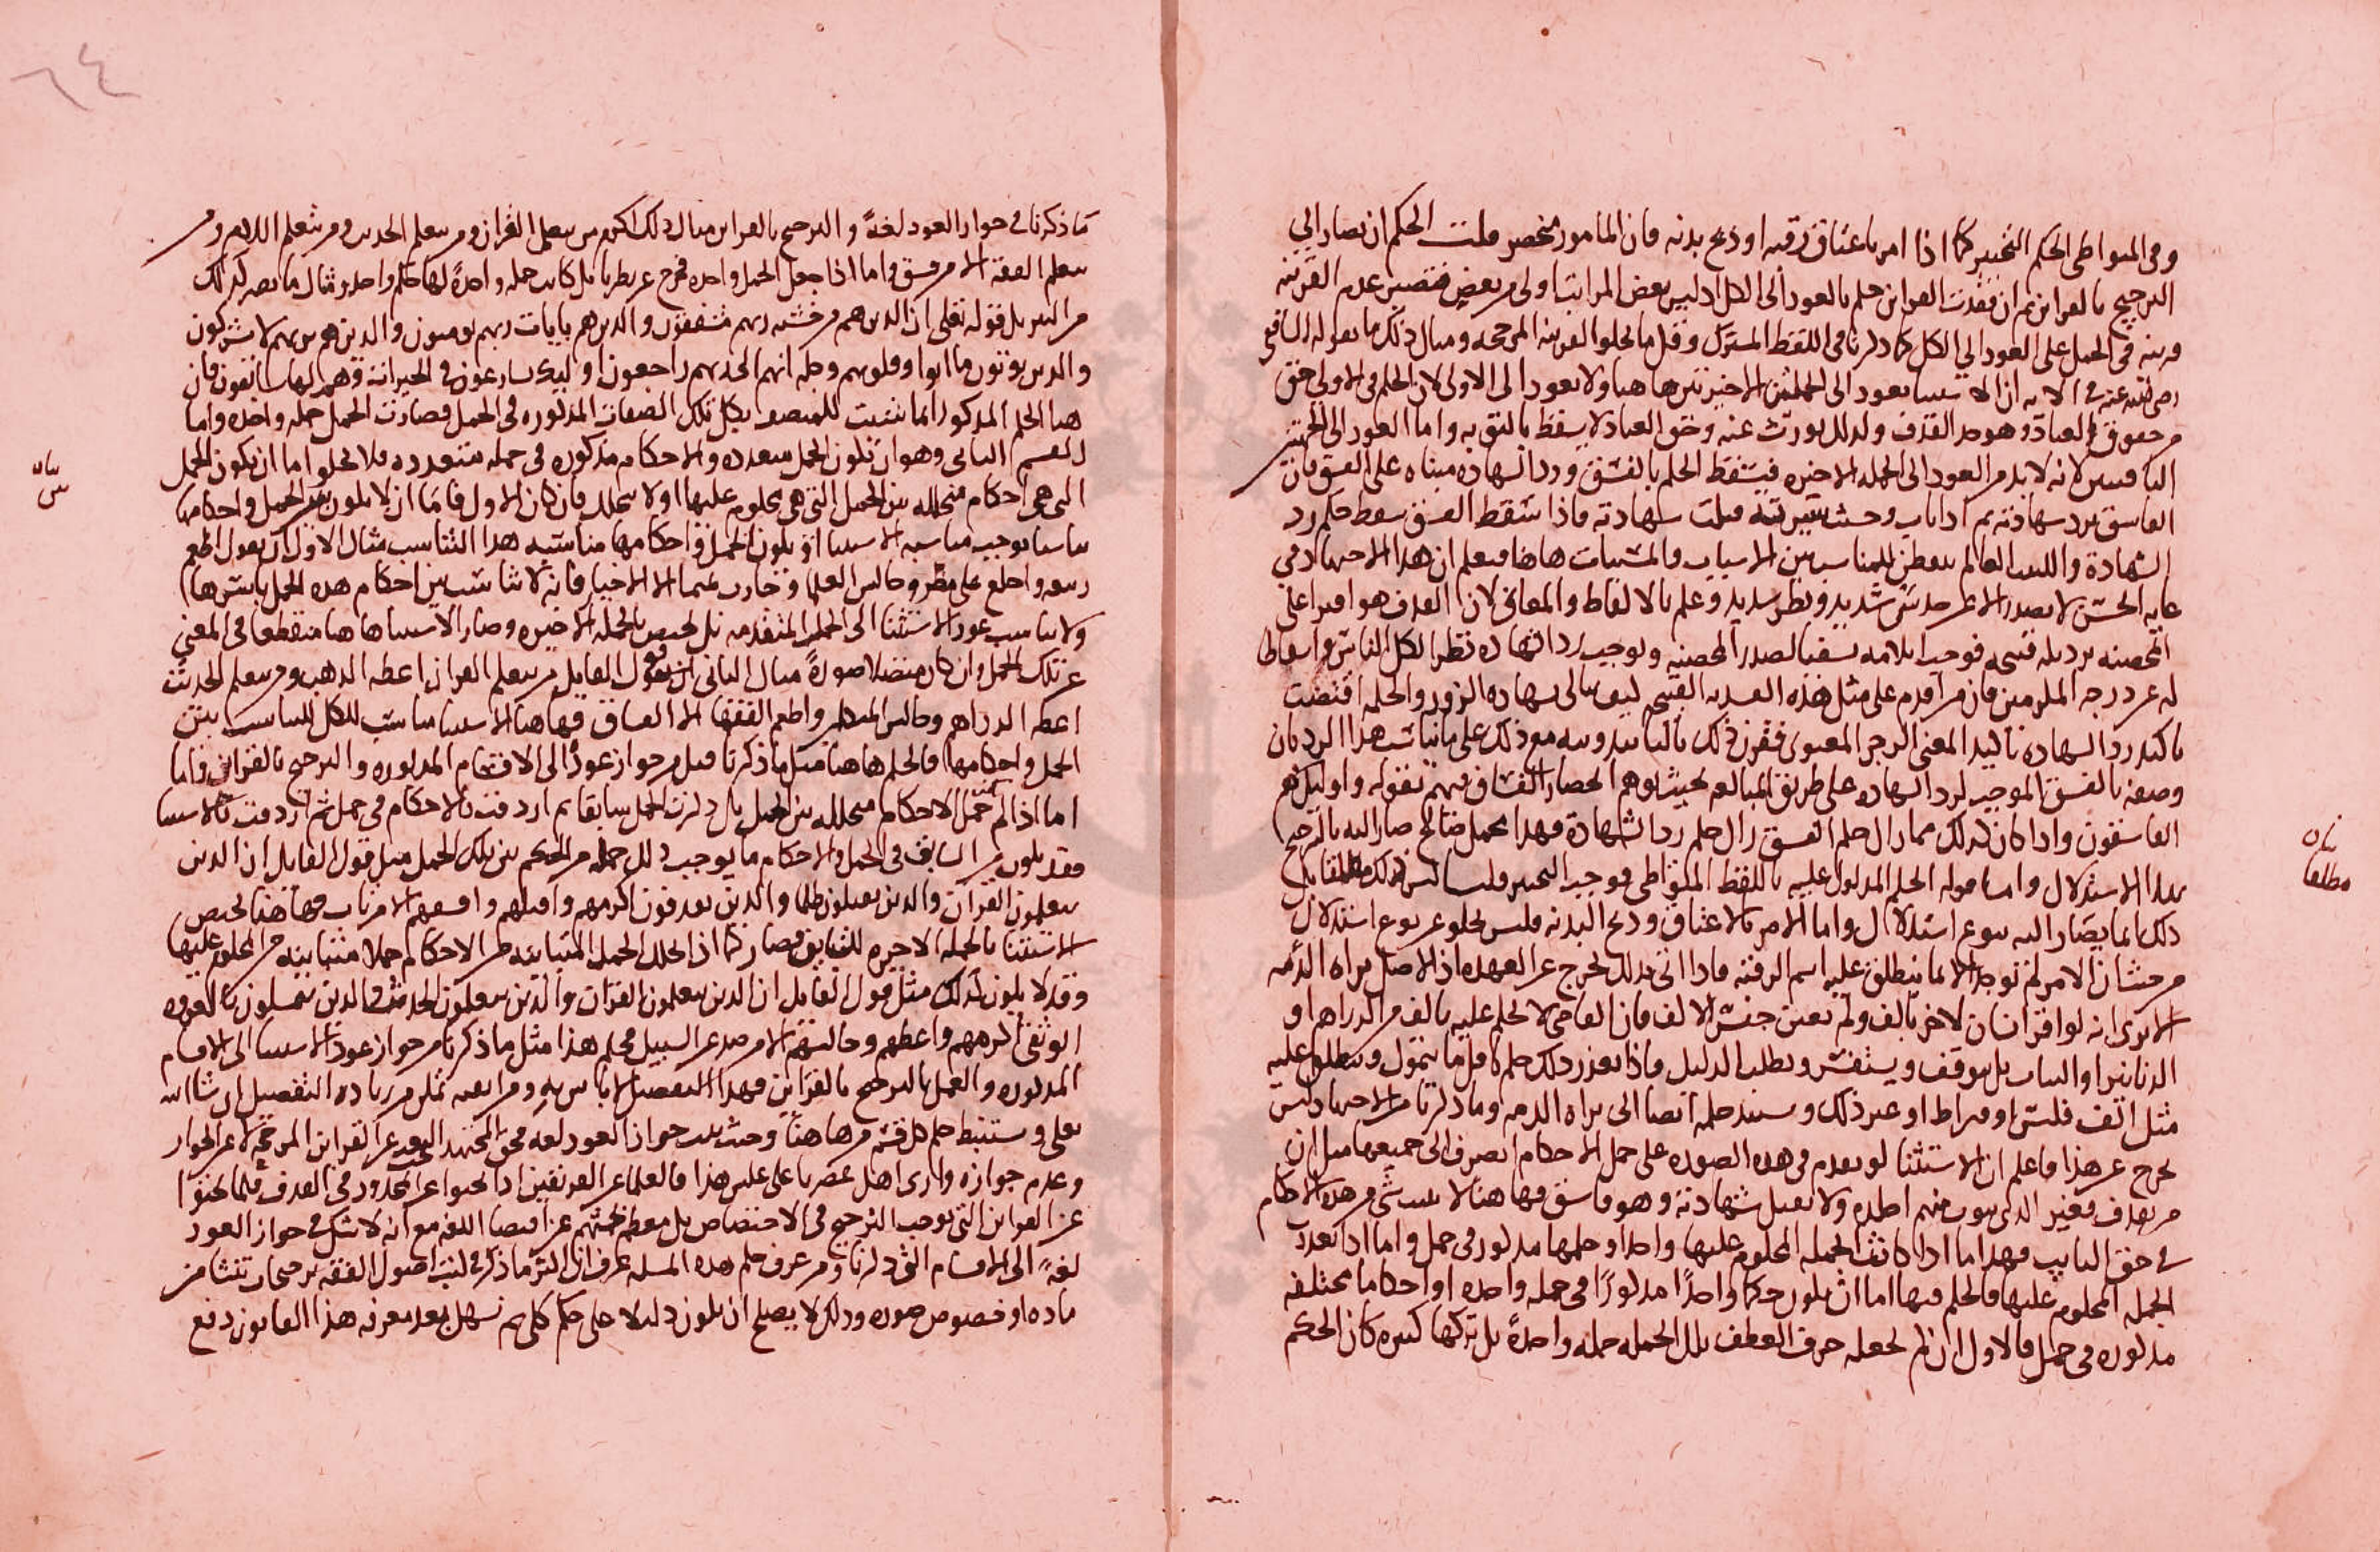 وفى المتواطى الحكم التخيير كما اذا امر باعتاق رقبه او ذبح بدنه فان المامور مخير قلت الحكم ان يصار الى
الترجيح بالقراين ثم ان فقدت القراين حكم بالعود الى الكل اذ ليس بعض المراتب اولى من بعض فتصير عدم القرينه
قرينه فى الحمل على العود الى الكل كما ذكرنا فى اللفظ المشترك وقل ما تخلوا القرينه المرجحه ومثال ذلك ما يقوله الشافعى
رضى الله عنه فى الايه ان الاستثنا يعود الى الجملتين الاخيرتين هاهنا ولا يعود الى الاولى لان الحكم فى الاولى حق
من حقوق العباد وهو حد القذف ولذلك يورث عنه وحق العباد لا يسقط بالتوبه واما العود الى الجملتين
الباقيتين لانه لا بد من العود الى الجمله الاخيره فيسقط الحكم بالفسق ورد الشهاده مبناه على الفسق فان
الفاسق ترد شهادته ثم اذا تاب وحسنت سيرته قبلت شهادته فاذا سقط الفسق سقط حكم رد
الشهادة واللبيب العالم يتفطن للمناسب بين الاسباب والمسببات هاهنا فيعلم ان هذا الاجتهاد فى
غايه الحسن لا يصدر الا عن حدس شديد ونظر سديد وعلم بالالفاظ والمعانى لان القذف هو افترا على
المحصنه برذيله قبيحه فوجب ايلامه تشفيا لصدر المحصنه ويوجب رد الشهاده نظرا لكل الناس واسقاطا
له عن درجه المكرمين فان من اقدم على مثل هذه الفريه القبيحه كيف يبالى بشهاده الزور والحكمه اقتضت
تاكيد رد الشهاده تاكيد المعنى الزجر المعنوى فقرن ذلك بالتابيد ونبه مع ذلك على ما يناسب هذا الرد بان
وصفه بالفسق الموجب لرد الشهاده على طريق المبالغه بحيث يوهم انحصار الفساق فيهم بقوله واوليك هم
الفاسقون واذا كان كذلك فمهما زال حكم الفسق زال حكم رد الشهادة فهذا محمل صالح صار اليه بالترجيح
بهذا الاستدلال واما قوله الحكم المدلول عليه باللفظ المتواطى فوجب التخيير قلنا ليس كذلك مطلقا بل
ذلك انما يصار اليه بنوع استدلال واما الامر بالاعتاق وذبح البدنه فليس يخلو عن نوع استدلال
من حيث ان الامر لم توجد الا ما ينطلق عليه اسم الرقبه فاذا اتى بذلك يخرج عن العهده اذ الاصل براه الذمه
الا ترى انه لو اقر انسان لاخر بالف ولم يعين جنس الالف فان القاضى لا يحكم عليه بالف من الدراهم او
الدنانير او الثياب بل يتوقف ويستفسر ويطلب الدليل فاذا تعذر ذلك حكم باقل ما يتمول وينطلق عليه
مثل الف فلس او قيراط او غير ذلك ويستند حكمه ايضا الى براه الذمه وما ذكرنا من الاجتهاد ليس
يخرج عن هذا فاعلم ان الاستثنا لو تقدم فى هذه الصوره على جمل الاحكام انصرف الى جميعها مثل ان
من يقذف فغير الذى يتوب منهم اجلده ولا تقبل شهادته وهو فاسق فهاهنا لا يثبت شى من هذه الاحكام
فى حق التايب فهذا اما اذا كانت الجمله المحكوم عليها واحدا وحكمها مذكور فى جمل واما اذا تعددت
الجمله المحكوم عليها فالحكم فيها اما ان يكون حكما واحدًا مذكورًا فى جمله واحده او احكاما مختلفه
مذكوره فى جمل فالاول ان لم تجعله حرف العطف بتلك الجمله جمله واحدة بل تركها كثيره كان الحكم
بيان
مطلقا
٦٤
ما ذكرنا فى جواز العود لغةً والترجيح بالقراين مثال ذلك اكرم من يتعلم القران ومن يتعلم الحديث ومن يتعلم الكلام ومن
يتعلم الفقه الا من فسق واما اذا جعل الجمل واحده فخرج عن نظرنا بل كانت جمله واحدة لها حكم واحد ومثال ما يصير كذلك
من التنزيل قوله تعالى ان الذين هم من خشيه ربهم مشفقون والذين هم بايات ربهم يومنون والذين هم بربهم لا يشركون
والذين يوتون ما اتوا وقلوبهم وجله انهم الى ربهم راجعون اوليك يسارعون فى الخيرات وهم لها سابقون فان
هنا الحكم المذكور انما يثبت للمتصف بكل تلك الصفات المذكوره فى الجمل فصارت الجمل جمله واحده واما
القسم الثانى وهو ان تكون الجمل متعدده والاحكام مذكوره فى جمله متعدده فلا تخلوا اما ان يكون الجمل
التى هى احكام متخلله بين الجمل التى هى محكوم عليها او لا يتخلل فان كان الاول فاما ان لا يكون بين الجمل واحكامها
تناسبا يوجب مناسبه الاستثنا او يكون الجمل واحكامها مناسبه هذا التناسب مثال الاول ان يقول اطعم
ربيعه واخلع على مضر وجالس العلما وتجارب تميما الا الاخيار فانه لا تناسب بين احكام هذه الجمل باسرها
ولا يناسب عود الاستثنا الى الجمله المتقدمه بل يختص بالجمله الاخيره وصار الاستثنا هاهنا منقطعا فى المعنى
عن تلك الجمل وان كان متصلا صورةً مثال الثانى ان يقول القايل من يتعلم القران اعطه الذهب ومن يتعلم الحديث
اعطه الدراهم وجالس المتكلم واطعم الفقها الا الفساق فهاهنا الاستثنا مناسب للكل للتناسب بين
الجمل واحكامها فالحكم هاهنا مثل ما ذكرنا قبل من جواز عوده الى الاقسام المذكوره والترجيح بالقراين واما
اما اذا لم تكن جمل الاحكام متخلله بين الجمل بل ذكرت الجمل سابقا ثم اردفت بالاحكام فى جمل ثم اردفت بالاستثنا
فقد يكون من السابق فى الجمل والاحكام ما يوجب ذلك جمله من الحكم بين تلك الجمل مثل قول القايل ان الذين
يتعلمون القرآن والذين يقتلون ظلما والذين يقذفون اكرمهم واقتلهم واقمعهم الا من تاب فهاهنا يختص
الاستثنا بالجمله الاخيره للسابق فصار كما اذا تخلل الجمل المتباينه من الاحكام جملا متباينه من المحكوم عليها
وقد لا يكون كذلك مثل قول القايل ان الذين يتعلمون القرآن والذين يتعلمون الحديث والذين يتمسكون بالعروه
الوثقى اكرمهم واعطهم وجالسهم الا من صد عن السبيل فحكم هذا مثل ما ذكرنا من جواز عود الاستثنا الى الاقسام
المذكوره والعمل بالترجيح بالقراين فهذا التفصيل لا باس به ومن اتقنه تمكن من زياده التفصيل ان شا الله
تعلى ويستنبط حكم كل قسم من هاهنا وحيث ثبت جواز العود لغه فحق المجتهد البحث عن القراين المرجحه لا عن الجواز
وعدم جوازه وارى اهل عصرنا على عكس هذا فالعلما عن الفريقين اذا بحثوا عن المحدود فى القذف قلما بحثوا
عن القراين التى توجب الترجيح فى الاختصاص بل معظم بحثهم عن اقتضا اللغه مع انه لا شك فى جواز العود
لغةً الى الاقسام التى ذكرنا ومن عرف حكم هذه المسله عرف ان اكثر ما ذكر فى كتب اصول الفقه ترجيحات تنشا من
ماده او خصوص صوره وذلك لا يصلح ان يكون دليلا على حكم كلى ثم يسهل بعد معرفه هذا القانون دفع
بيان